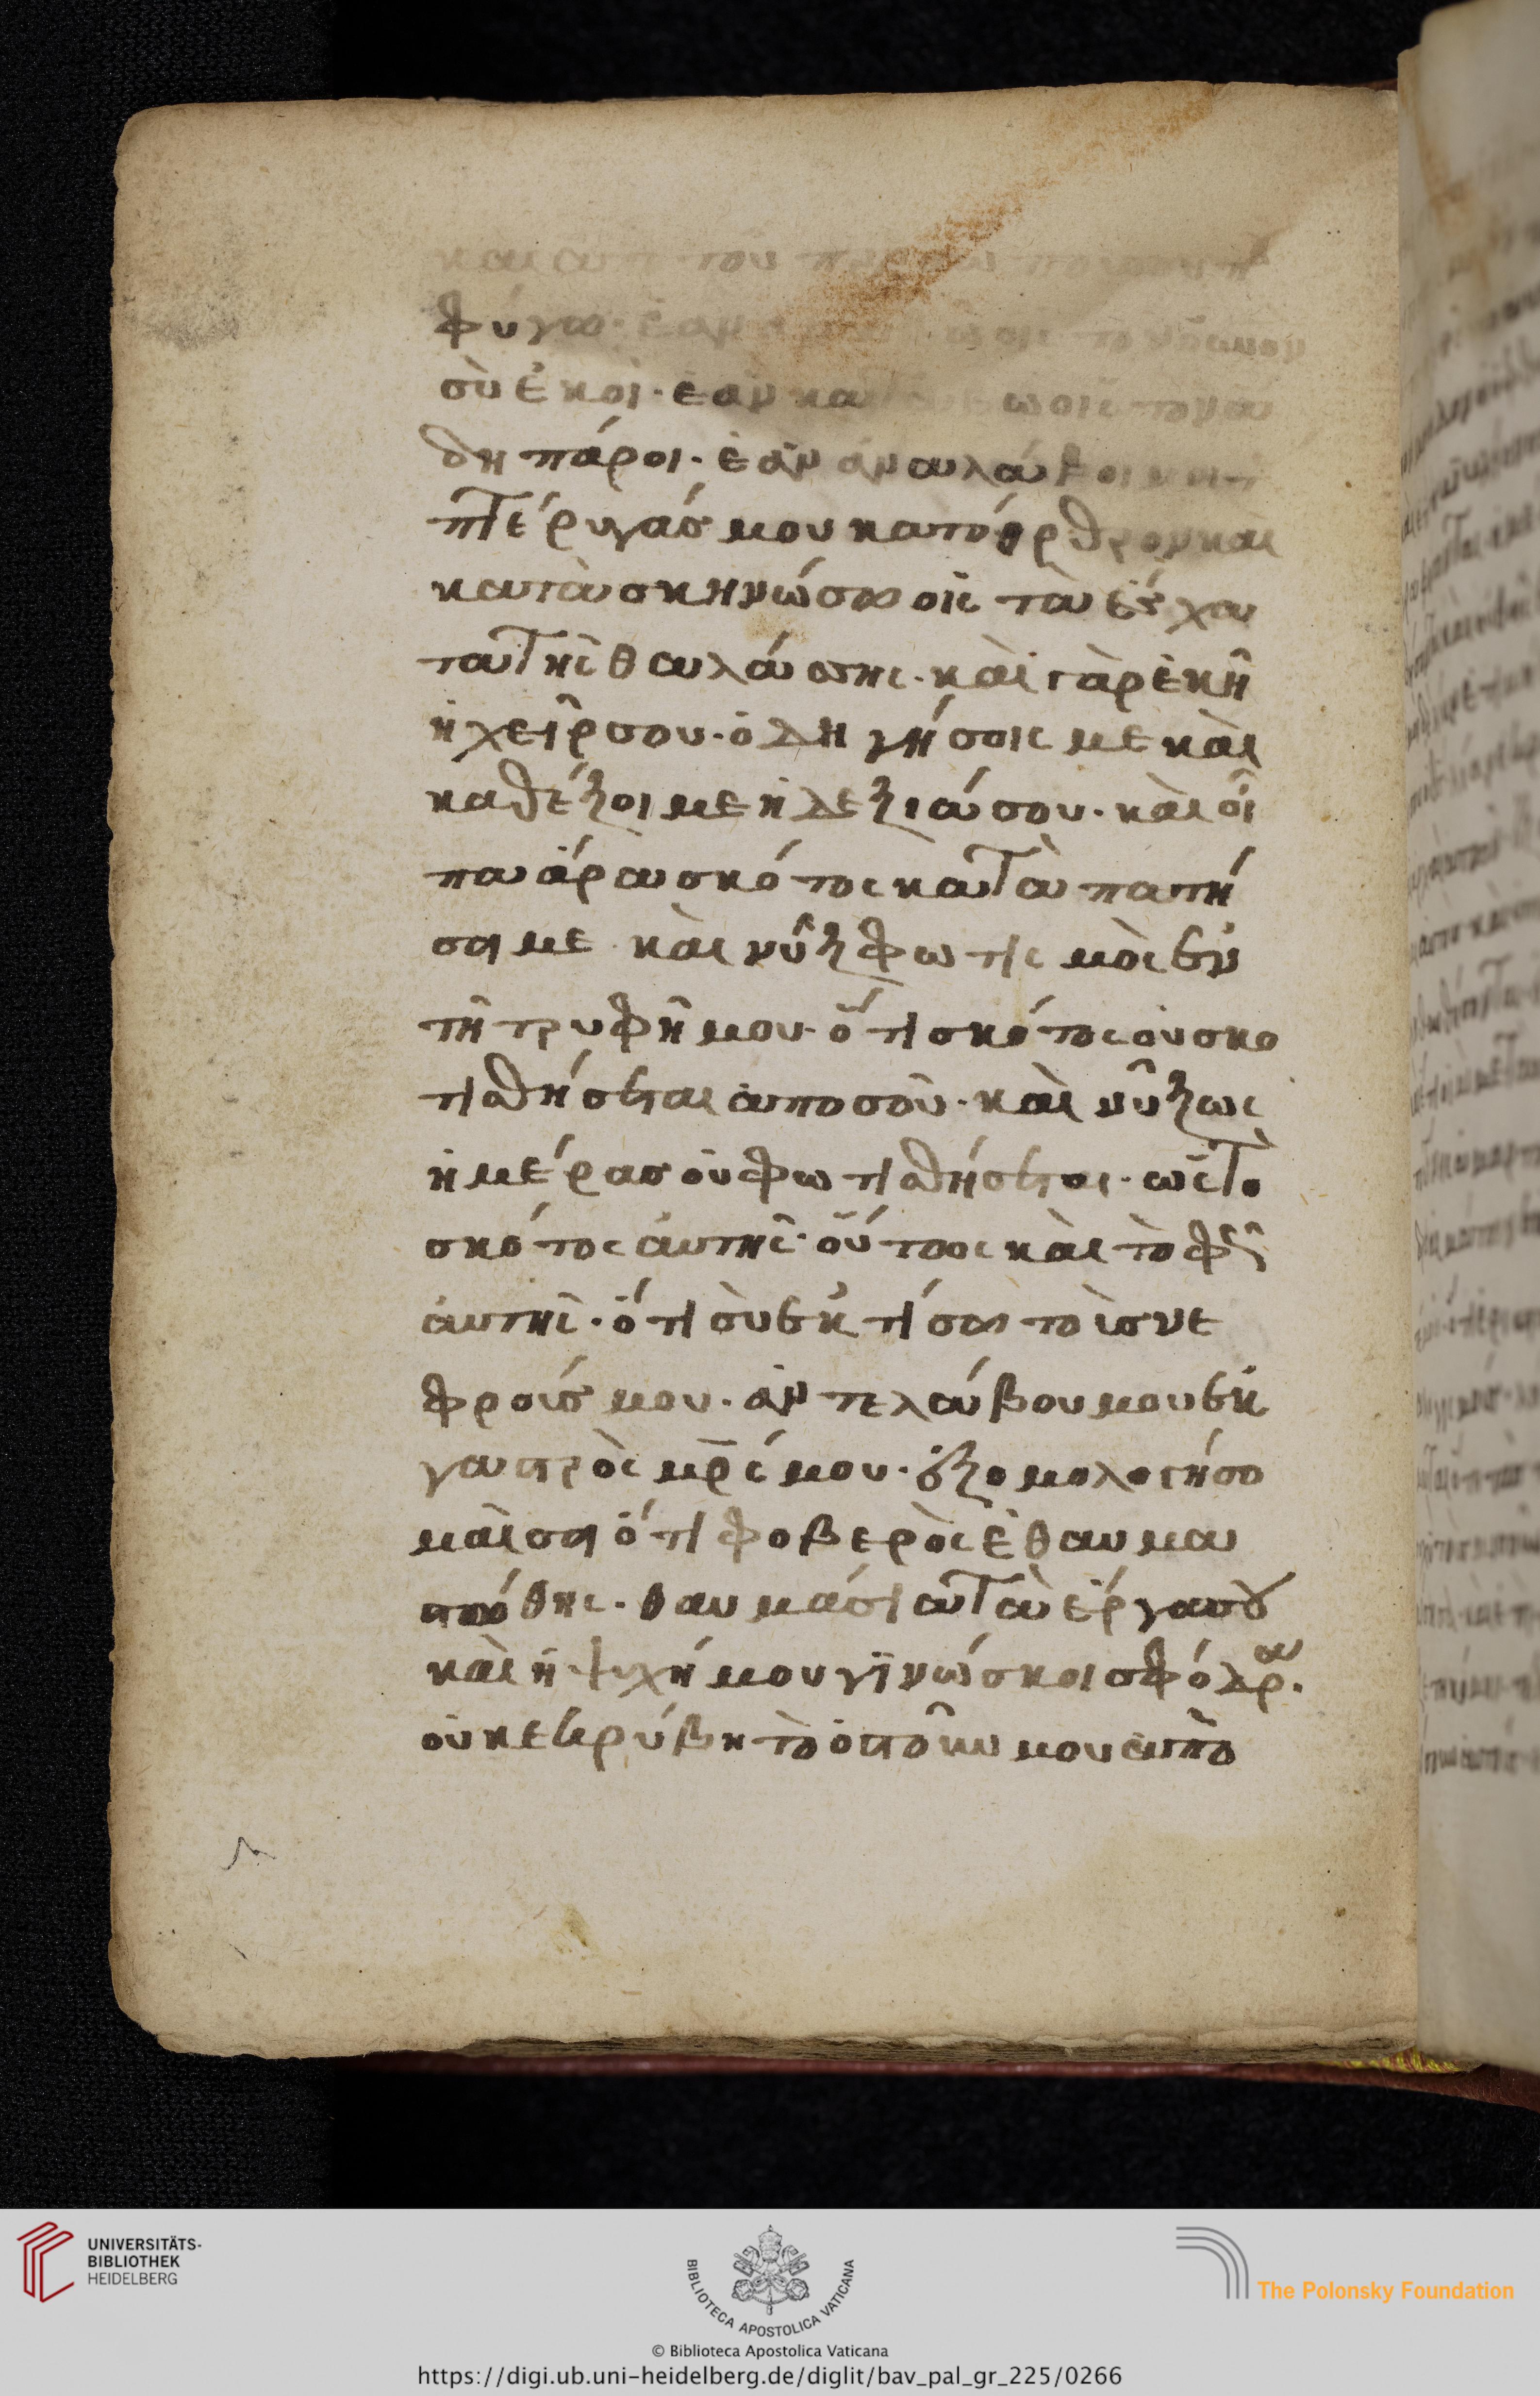 και απο του
φύγω· ἐὰν εἰς τὸν οὐνον
σὺ ἐκεὶ· ἐὰν εἰς τον α
δη πάρει· ἐὰν ἀναλάβοι
πτέρυγάς μου κατόρθρον και
κατὰσκηνώσω εἰς τὰ έσχα
τα τῆς θαλάσσης· καὶ γὰρ ἐκῆ
ἡ χεῖρ σου· ὁδηγήσεις με καὶ
καθέξει με ἡ δεξιά σου· καὶ εἶ
πα ἄρα σκότος κατὰ πατή
σει με καὶ νῦξ φωτισμὸς ἐν
τῆ τρυφῆ μου· ὅτι σκότος οὐ σκο
τιθήσεται ἀπο σοῦ· καὶ νῦξ ως
ἡμέρας οὐ φωτιθήσεται· ως τὸ
σκότος ἀυτῆς· οὕτως καὶ τὸ φῶς
ἀυτῆς· ὅτι σὺ ἐκτήσω τοὺς νε
φρούς μου· ἀντελάβου μου ἐκ
γαστρὸς μρς μου· ἐξομολογήσο
μαὶ σοι ὅτι φοβερὸς ἐθαυμα
στώθης· θαυμάσια τὰ ἔργα σου
καὶ ἡ ψυχή μου γινώσκει σφόδρα.
οὐκ εκρύβη τὸ ὀστοῦν μου ἀπὸ
UNIVERSITÄTS-
BIBLIOTHEK
HEIDELBERG
BIBLIOTECA APOSTOLICA VATICANA
The Polonsky Foundation
© Biblioteca Apostolica Vaticana
https://digi.ub.uni-heidelberg.de/diglit/bav_pal_gr_225/0266